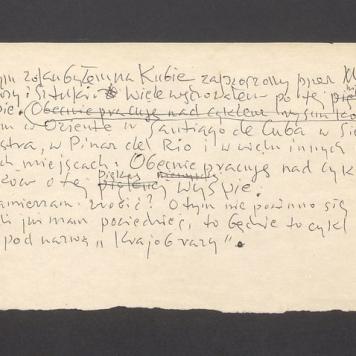 ym roku byłem na Kubie zaproszony przez
i Sztuki. Wiele wędrowałem po tej
pie. Obecnie pracuję nad cyklem
m w Oriente w Santiago de Cuba w Sie
stra, w Pinar del Rio i w wielu innych
ch miejscach. Obecnie pracuję nad cyk
zów o tej pięknej wyspie.
zamierzam zrobić? O tym nie powinno się
li już mam powiedzieć, to będzie to cykl
pod nazwą „Krajobrazy".